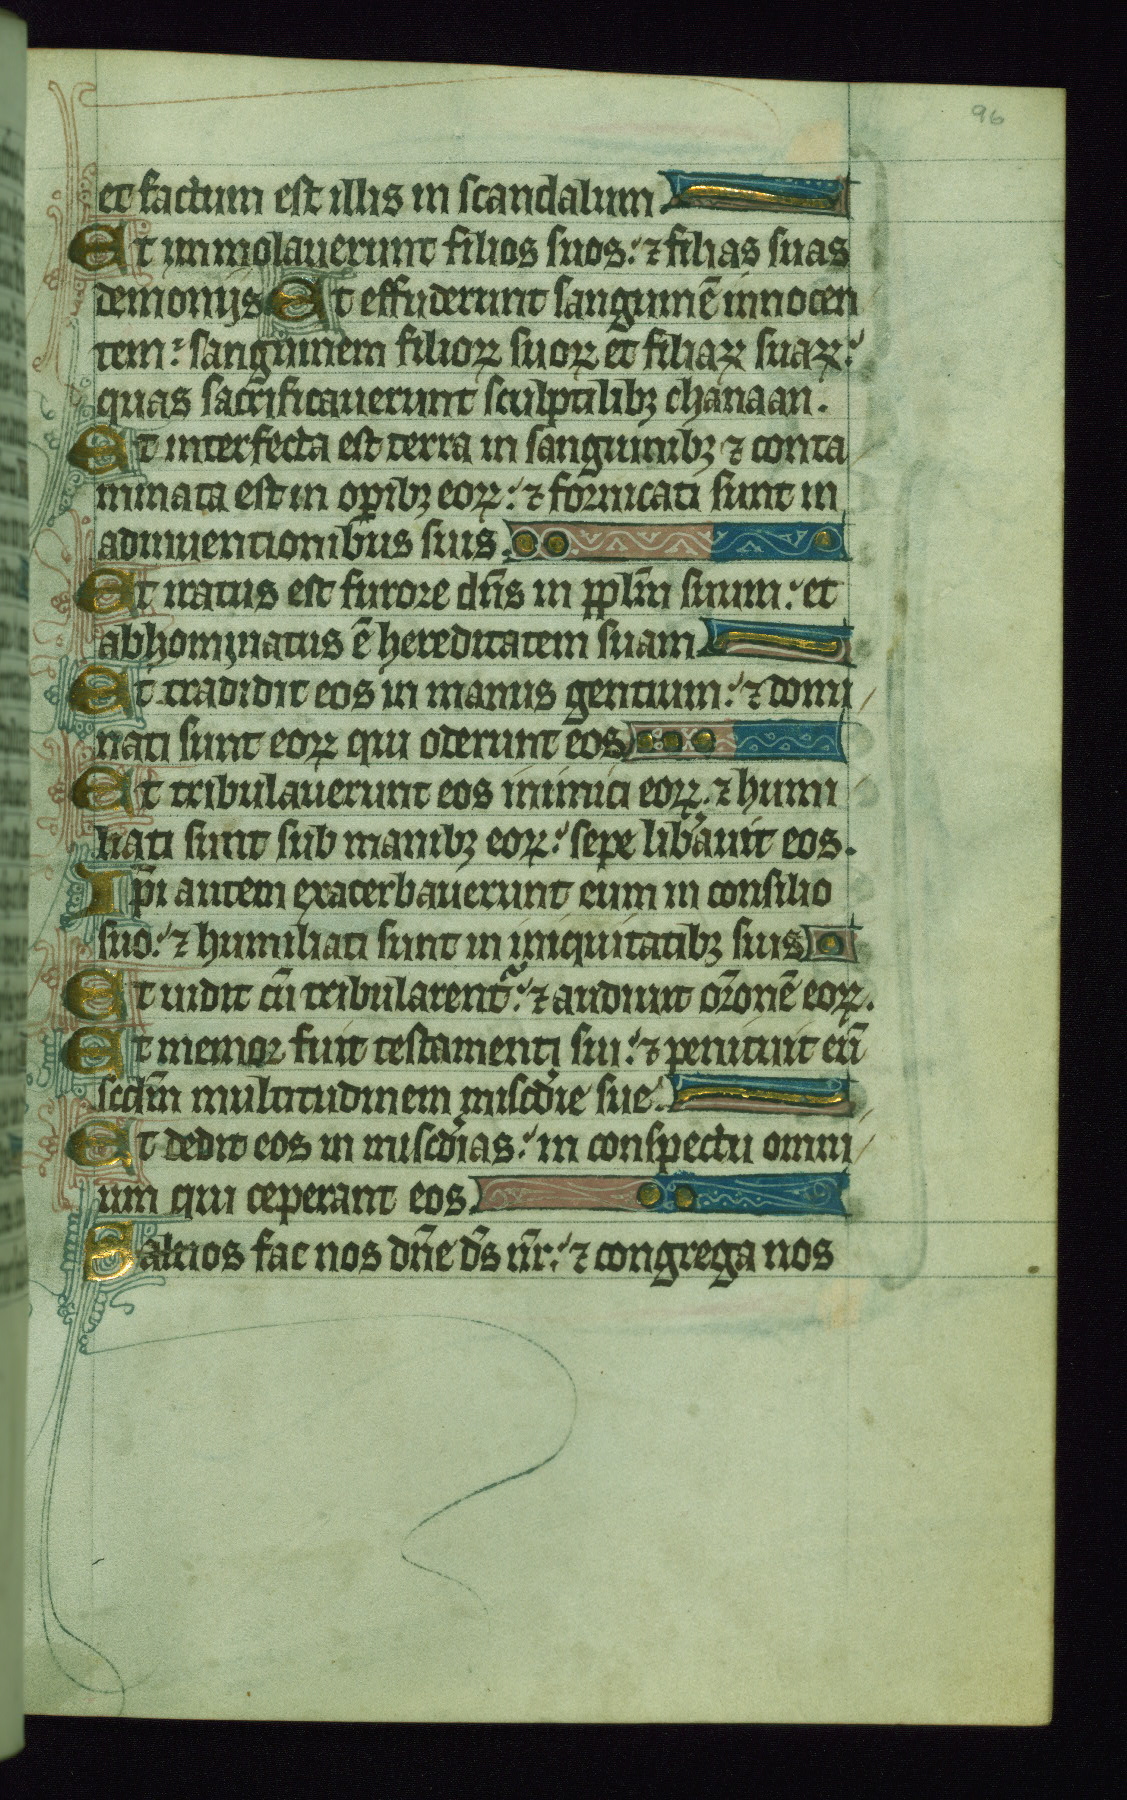 96
et factum est illis in scandalum
Et immolauerunt filios suos: ⁊ filias suas
demoniis Et effuderunt sanguinē innocen
tem: sanguinem filioꝝ suoꝝ et filiaꝝ suaꝝ:
quas sacrificauerunt sculptilibꝫ chanaan.
Et interfecta est terra in sanguinibꝫ ⁊ conta
minata est in oꝑibꝫ eoꝝ: ⁊ fornicati sunt in
adinuentionibus suis.
Et iratus est furore dn̄s in ppl̄m suum: et
abhominatus ē hereditatem suam
Et tradidit eos in manus gentium: ⁊ domi
nati sunt eoꝝ qui oderunt eos
Et tribulauerunt eos inimici eoꝝ. ⁊ humi
liati sunt sub manibꝫ eoꝝ: sepe lib̾auit eos.
Ip̄i autem exacerbauerunt eum in consilio
suo: ⁊ humiliati sunt in iniquitatibꝫ suis
Et uidit cū tribularent᷑: ⁊ audiuit or̄onē eoꝝ.
Et memor fuit testamenti sui: ⁊ penituit eū
scd̄m multitudinem misc̄die sue.
Et dedit eos in misc̄dias: in conspectu omni
um qui ceperant eos.
Saluos fac nos dn̄e d̄s nr̄: ⁊ congrega nos